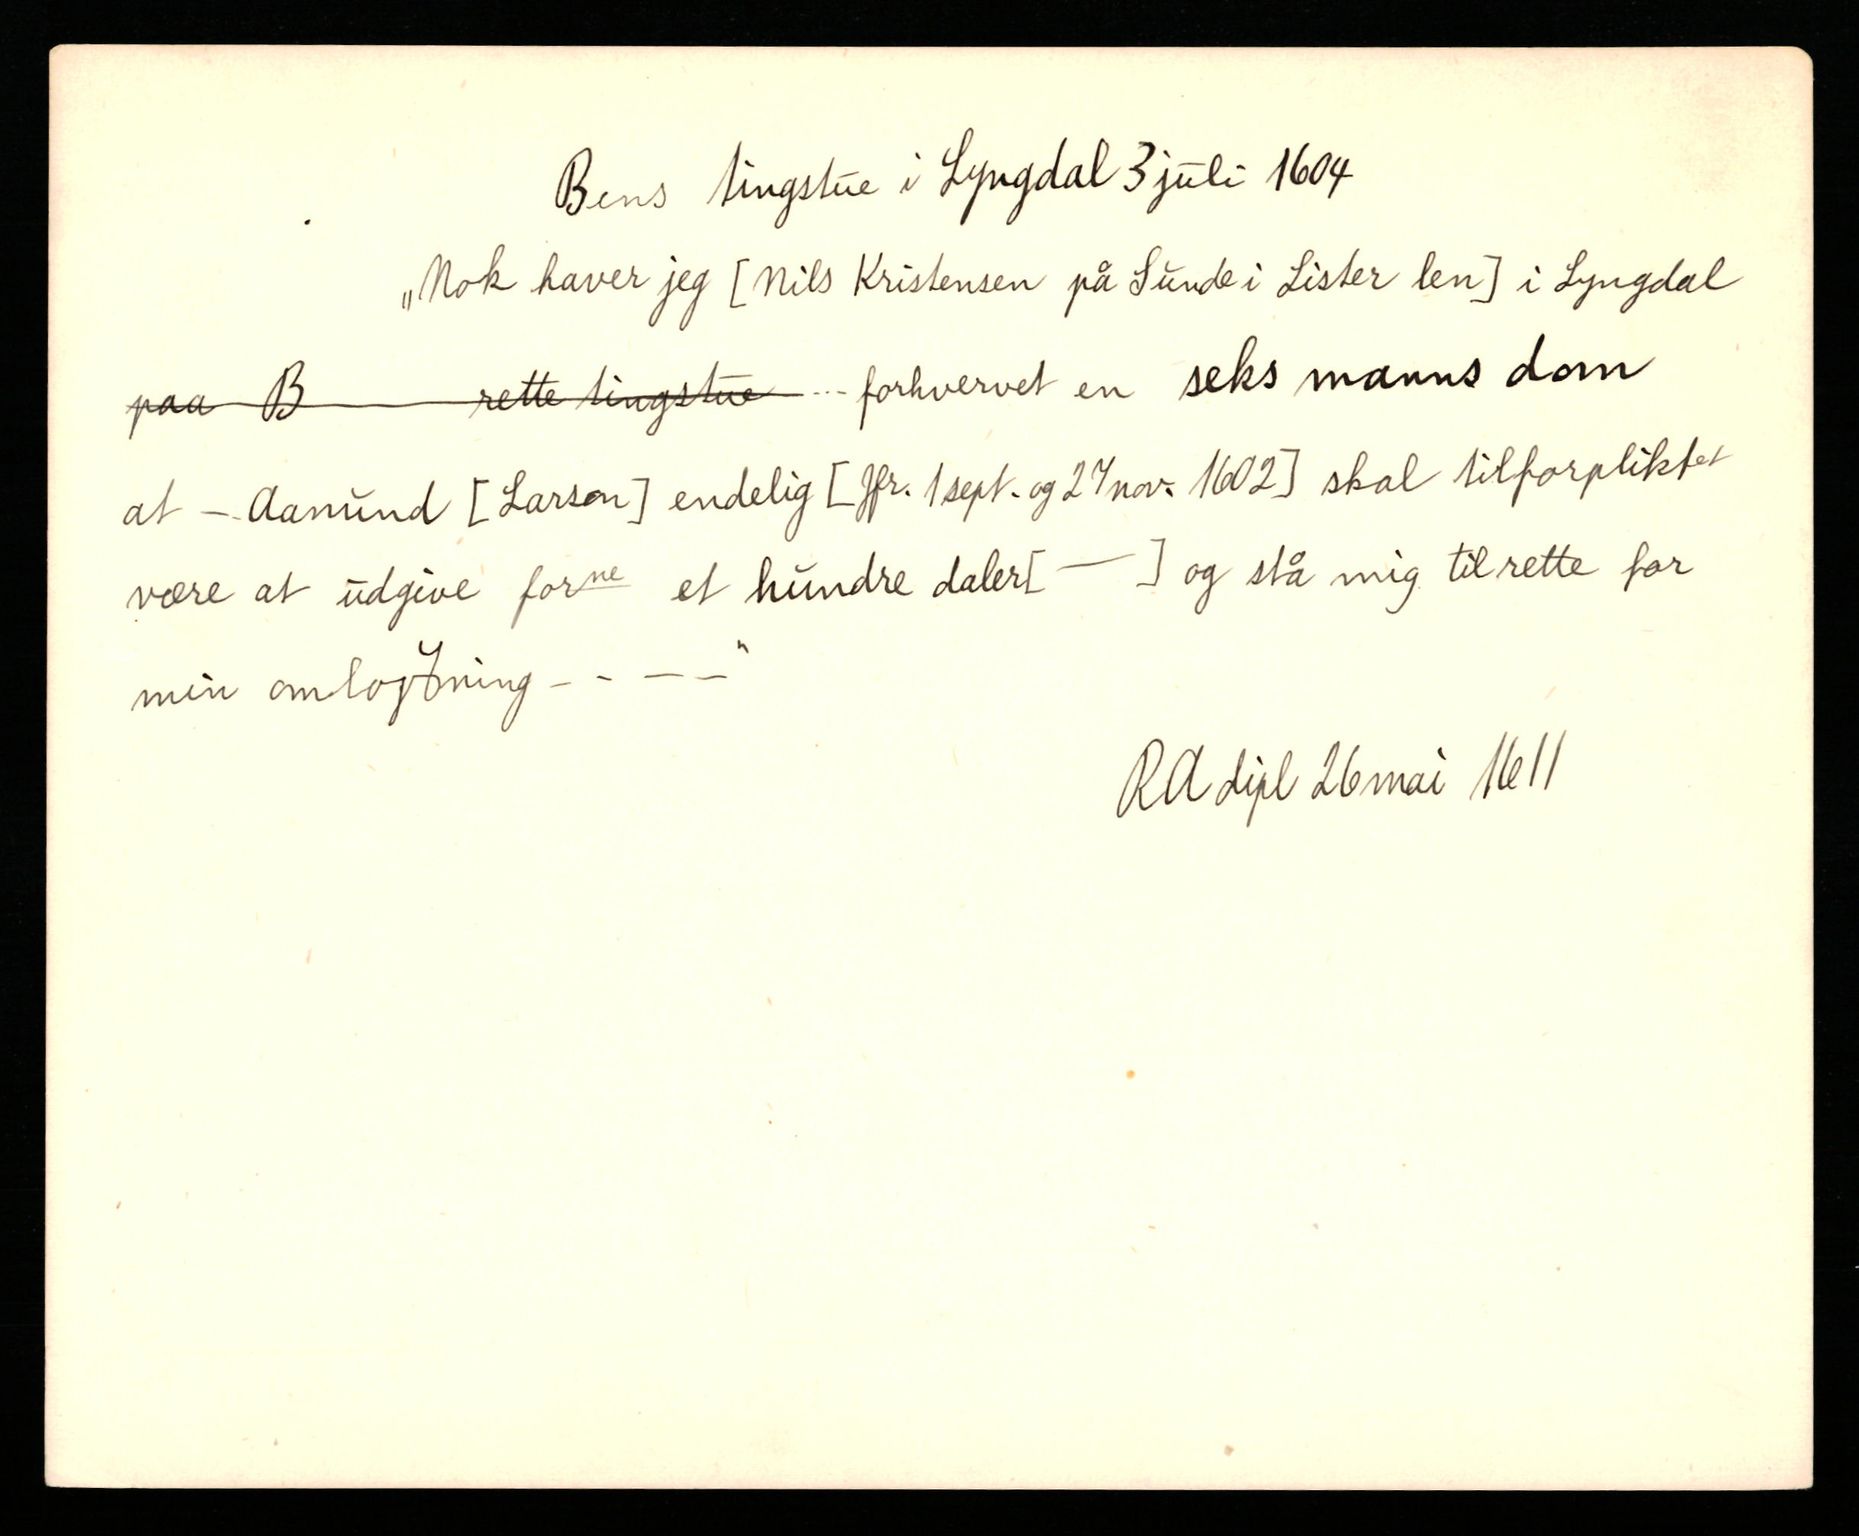 Bens tingstue i Lyngdal 3 juli 1604
„Nok haver jeg [Nils Kristensen på Sunde i Lister len] i Lyngdal
paa B rette tingstue ... forhvervet en seks manns dom
at - Aamund [Larson] endelig [Jfr. 1 sept. og 27 nov. 1602] skal tilforpliktet
være at udgive forne et hundre daler [ — ] og stå mig til rette for
min - - - -"
RA dipl 26 mai 1611